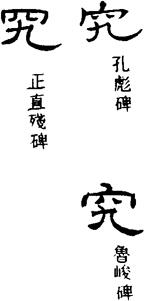 究
孔彪碑
究
魯峻碑
究
正直殘碑